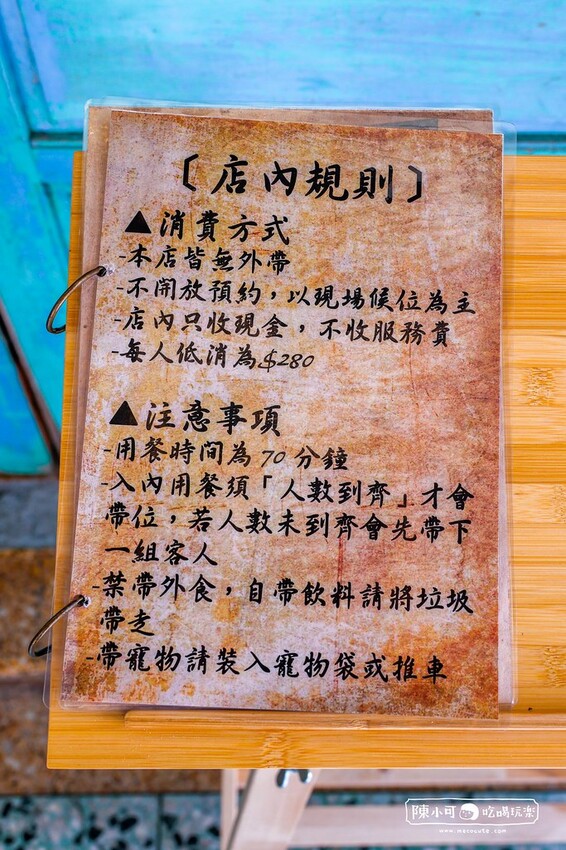 〔店內規則〕
▲消費方式
-本店皆無外帶
-不開放預約，以現場候位為主
-店內只收現金，不收服務費
-每人低消為$280
▲注意事項
-用餐時間為70分鐘
-入內用餐須「人數到齊」才會
帶位，若人數未到齊會先帶下
一組客人
-禁帶外食，自帶飲料請將垃圾
帶走
-帶寵物請裝入寵物袋或推車
陳小可 吃喝玩樂
www.mecocute.com